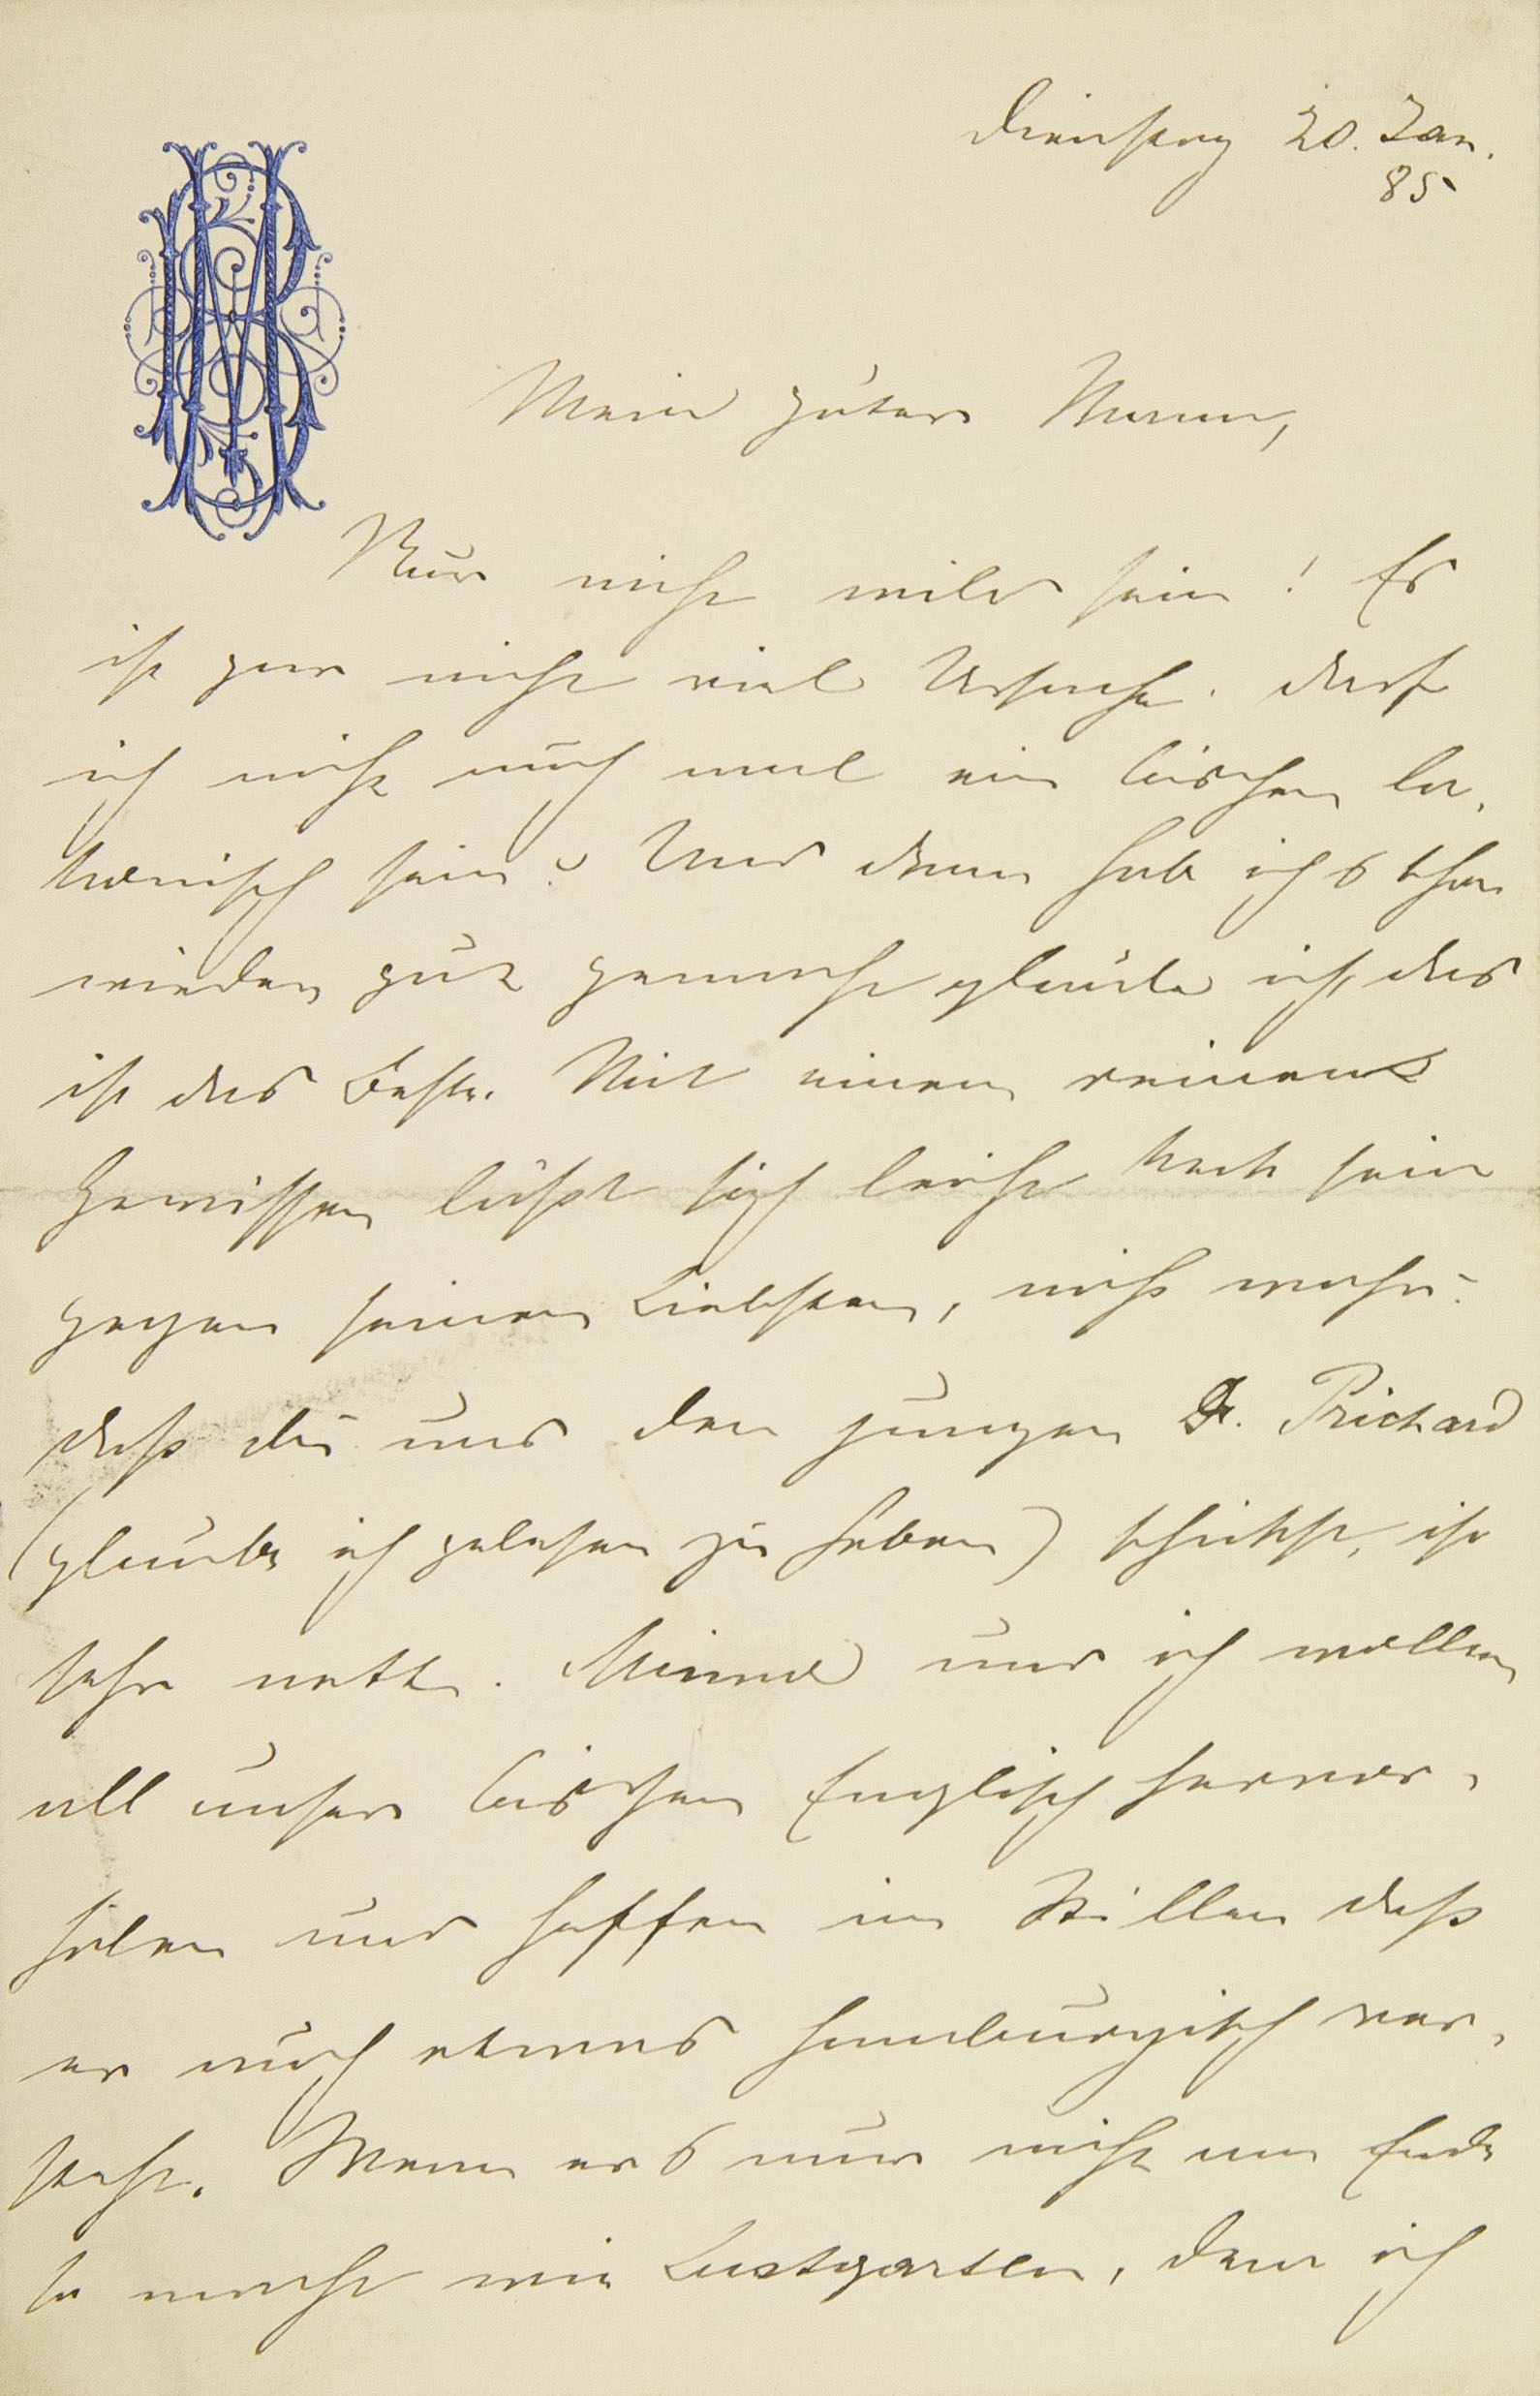 Dienstag 20. Jan.
85
Mein guter Mann,
Nur nicht wild sein! Es
ist gar nicht viel Ursache. Darf
ich nicht auch mal ein bischen la,
konisch sein? Und dann hab ich's schon
wieder gut gemacht glaube ich, das
ist das Beste. Mit einem reinen
Gewissen läßt sich leicht keck sein
gegen seinen Liebsten, nicht wahr?
Daß Du uns den jungen Dr. Prichard
(glaube ich gelesen zu haben) schickst, ist
sehr nett. Minna und ich wollen
all unser bischen Englisch hervor,
holen und hoffen im Stillen daß
er auch etwas hamburgisch ver,
steht. Wenn er's nur nicht am Ende
so macht wie Lustgarten, den ich